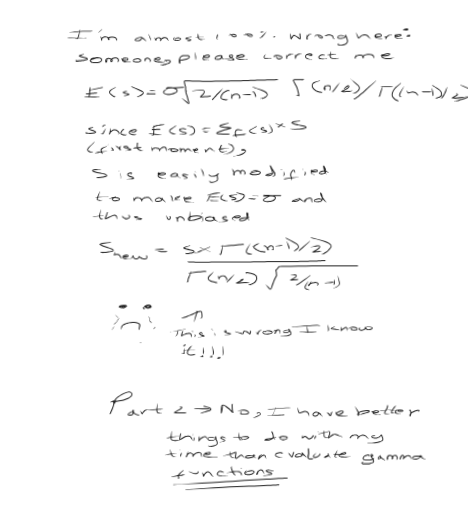 I'm almost 100% wrong here:
Someone, please correct me
E(s)=σ√2/(n-1) Γ(n/2)/Γ((n-1)/2)
since E(s) = Σf(s)×S
(first moment),
S is easily modified
to make E(s)=σ and
thus unbiased
Snew = S×Γ((n-1)/2)
Γ(n/2)√2/(n-1)
:( ↑
This is wrong I know
it!!!
Part 2 → No, I have better
things to do with my
time than evaluate gamma
functions